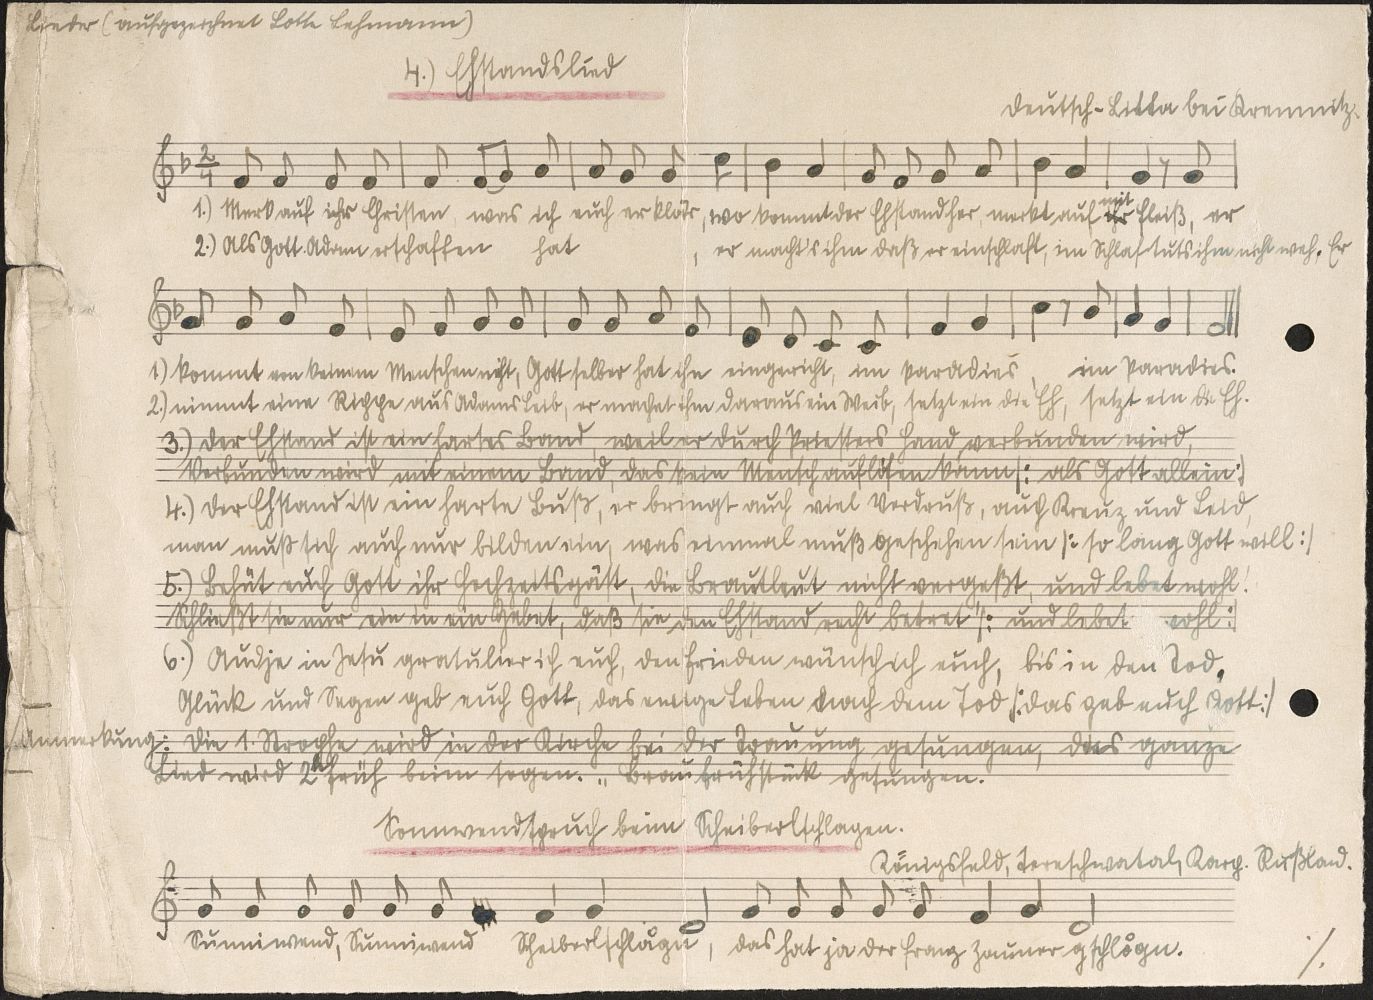 Lieder (aufgezeichnet Lotte Lehmann)
4.) Ehstandslied
Deutsch-Litta bei Kremnitz.
1.) Merk auf ihr Christen, was ich euch erklär, wo kommt der Ehstand her, merkt auf mit Fleiß, er
2.) Als Gott Adam erschaffen hat, er macht's ihm daß er einschlaft, im Schlaf tuts ihm nicht weh. Er
1) kommt von keinem Menschen nicht, Gott selber hat ihn eingericht, im Paradies, im Paradies.
2.) nimmt eine Rippe aus Adams Leib, er machet ihm daraus ein Weib, setzt ein die Eh, setzt ein die Eh.
3.) Der Ehstand ist ein hartes Band, weil er durch Priesters Hand verbunden wird,
Verbunden wird mit einem Band, das kein Mensch auflösen kann /: als Gott allein :/
4.) Der Ehstand ist ein harte Buß, er bringt auch viel Verdruß, auch Kreuz und Leid,
man muß sich auch nur bilden ein, was einmal muß geschehen sein /: so lang Gott will :/
5.) Behüt euch Gott ihr Hochzeitsgäst, die Brautleut nicht vergeßt, und lebet wohl!
Schließt sie nur ein in ein Gebet, daß sie den Ehstand recht betret /: und lebet wohl :/
6.) Audje in Jesu gratulier ich euch, den Frieden wünsch ich euch, bis in den Tod,
Glück und Segen geb euch Gott, das ewige Leben nach dem Tod /: das geb euch Gott :/
Anmerkung: Die 1. Strophe wird in der Kirche bei der Trauung gesungen, das ganze
Lied wird 2h früh beim sogen. „Braufrühstück gesungen.
Sonnwendspruch beim Scheiberlschlagen.
Königsfeld, Tereschwatal, Karp. Rußland.
Sunniwend, Sunniwend Scheiberlschlågn, das hat ja der Franz Zauner gschlågn.
./.